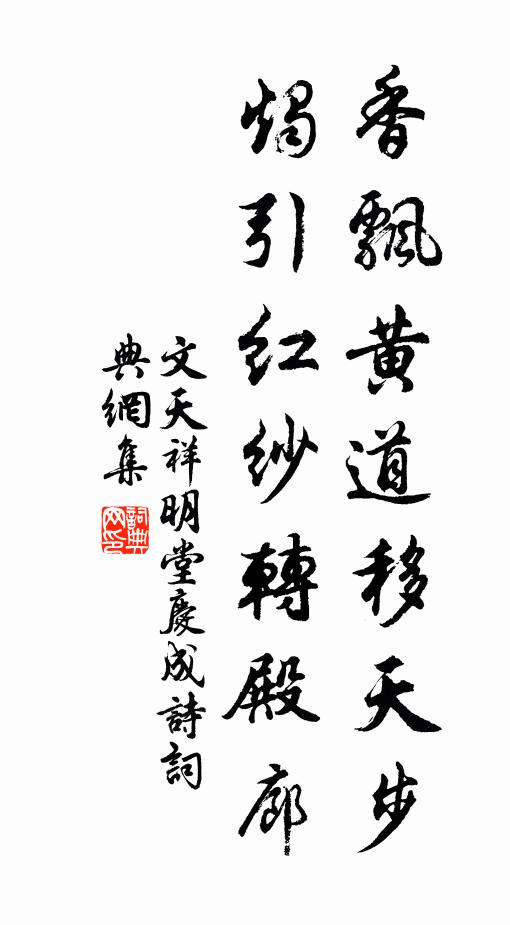 香飄黃道移天步
燭引紅紗轉殿廊
文天祥明堂慶成詩詞
典網集
詞典
网印